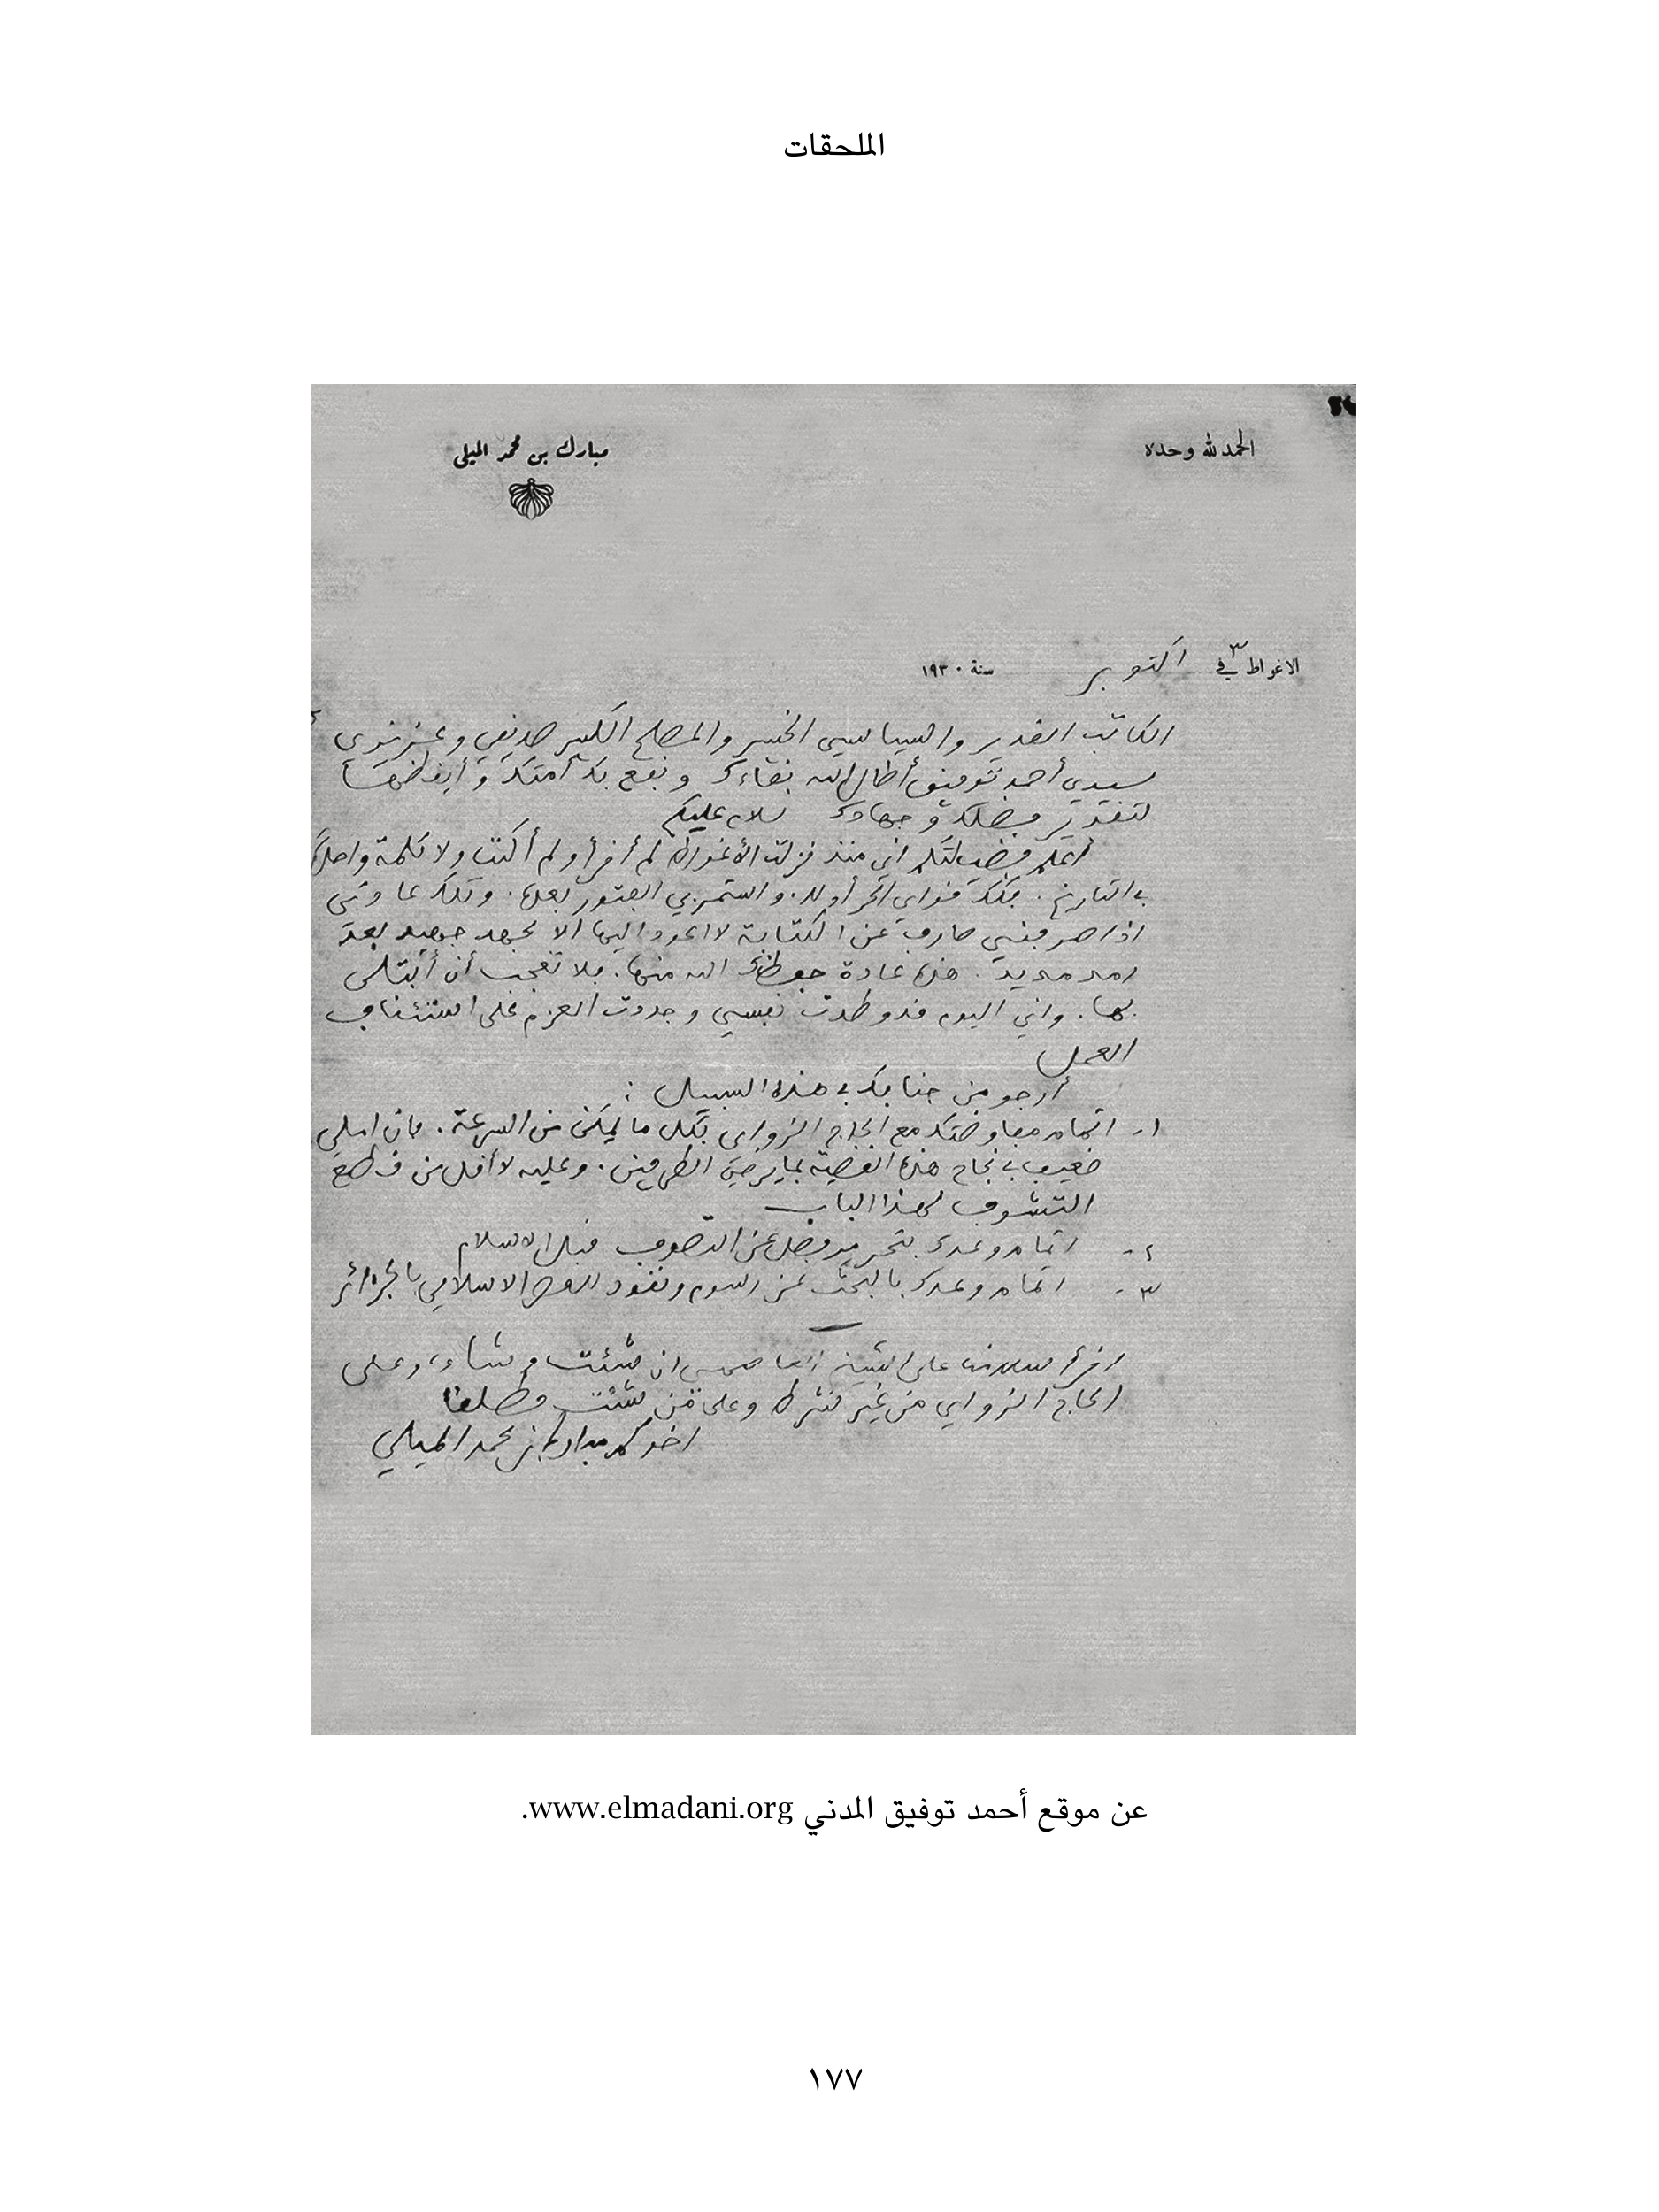 الملحقات
الحمد لله وحده
مبارك بن محمد الميلي
الاغواط في ٣ اكتوبر سنة ١٩٣٠
الكاتب القدير والسياسي الخبير والمصلح الكبير صديقي وعزيزي
سيدي أحمد توفيق أطال الله بقاءك ونفع بك أمتك وأيقظها
لتقدير فضلك وجهادك سلام عليكم
أعلم فضيلتكم اني منذ نزلت الأغواط لم أقرأ ولم أكتب ولا كلمة واحدة
بالتاريخ. فتلك قواي الحر أولا. واستمر بي الفتور بعده. وتلك عادتي
اذا صرفني صارف عن الكتابة لا اعود اليها الا بجهد جهيد بعد
امد مديد. هذه عادة حفظك الله منها. فلا تعجب أن أبتلى
بها. واني اليوم قد وطدت نفسي وجددت العزم على استئناف
العمل
أرجو من جنابك في هذه السبيل :
١- اتمام مفاوضتك مع الحاج الزواي بكل ما يمكن من السرعة. فان املي
ضعيف في نجاح هذه القضية بما يرضي الطرفين. وعليه لا أقل من قطع
التشوف لهذا الباب
٢- اتمام وعدك بتحرير فصل عن التصوف قبل الاسلام
٣- اتمام وعدك بالبحث عن رسوم ونقود للعصر الاسلامي بالجزائر
اقرأ سلامنا على الشيخ العاصمي ان شئت وشاء، وعلى
الحاج الزواي من غير شرط وعلى من شئت مطلقا
اخوكم مبارك بن محمد الميلي
عن موقع أحمد توفيق المدني www.elmadani.org.
١٧٧